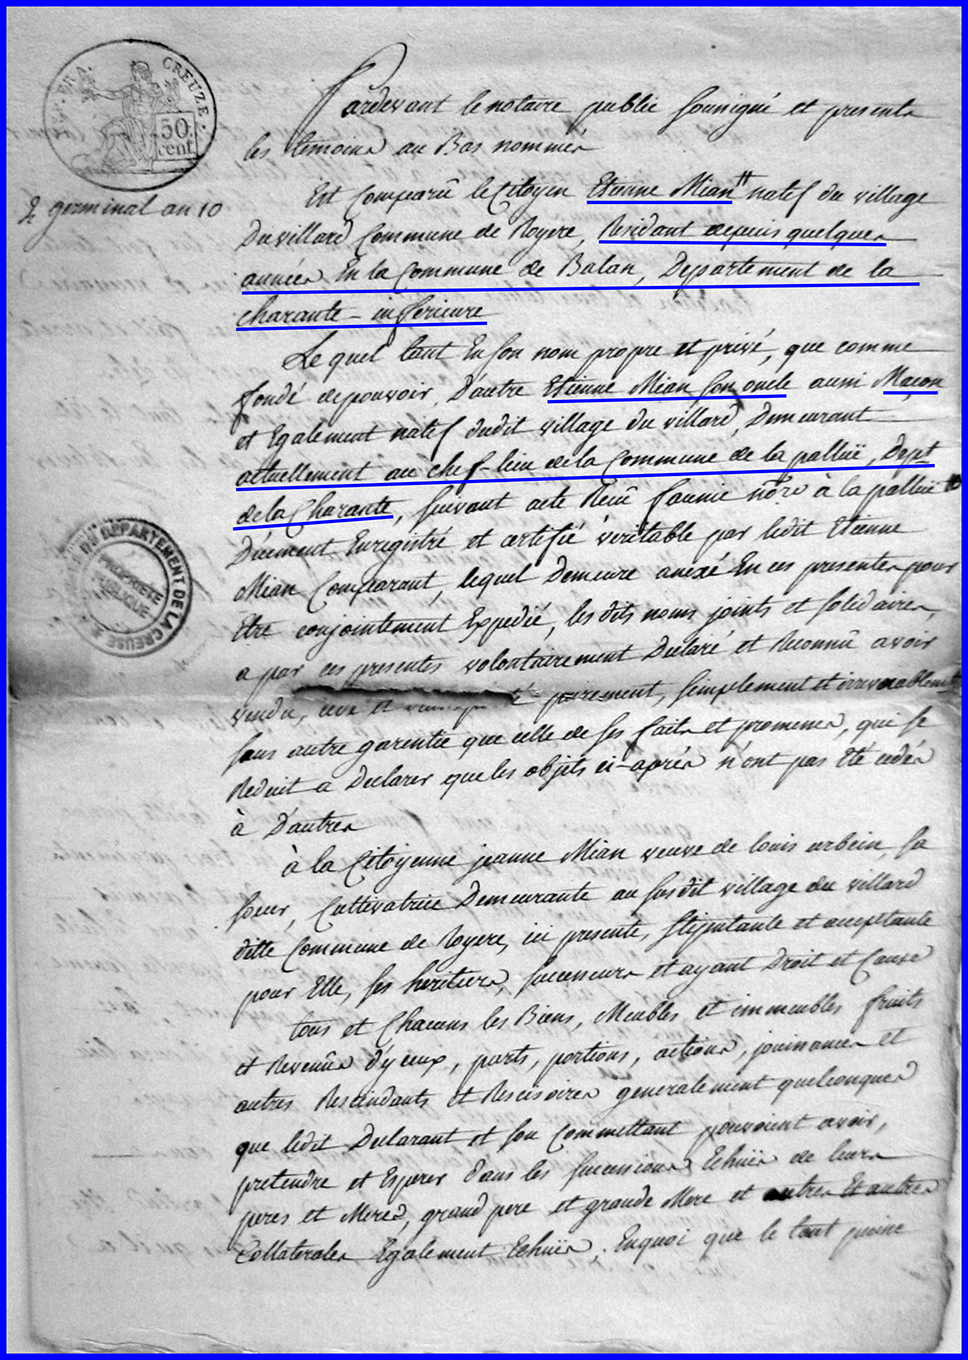 CREUZE.
50
cent
2 germinal an 10
Pardevant le notaire public sousigné et presents
les temoins au Bas nommés
Est Comparû le Citoyen Etienne Mian natif du village
Du villard Commune de Royere, Residant depuis quelques
années En la Commune de Balan, Departement de la
charante - inferieure
Le quel tant En son nom propre et privé, que comme
fondé de pouvoir, D'autre Etienne Mian son oncle aussi Maçon
et Egalement natif dudit village du villard, Demeurant
actuellement au chef-lieu de la Commune de la palluë, Dept
de la Charante, suivant acte Reçû faunie nore à la palluë
Düement Enregistré et certifié véritable par ledit Etienne
Mian Comparant, lequel Demeure anexé En ces presentes pour
être conjointement Expedié, les dits noms joints et solidaires,
a par ces presentes volontairement Declaré et Reconnû avoir
vendu, cedé et purement, simplement et irrevocablement
sans autre garentie que celle de ses faits et promesses, qui se
Reduit a Declarer que les objets ci-après n'ont pas Eté cedés
à D'autres
à la Citoyenne jeanne Mian veuve de louis urbein, sa
soeur, Cultivatrice Demeurante au susdit village du villard
ditte Commune de Royere, ici presente, stipulante et acceptante
pour Elle, ses heritiers, successeurs et ayant Droit et Cause
tous et Chacuns les Biens, Meubles et immeubles fruits
et Revenûs d'yceux, parts, portions, actions, jouissances et
autres Rescindants et Rescisoires generalement quelconques
que ledit Declarant et son Commettant pouvoient avoir,
pretendre et Esperer dans les successions Echuës de leurs
peres et Meres, grand pere et grande Mere et autres Et autres
Collaterales Egalement Echuës. Enquoi que le tout puisse
DU DEPARTEMENT DE LA CREUSE
PROPRIETE
PUBLIQUE